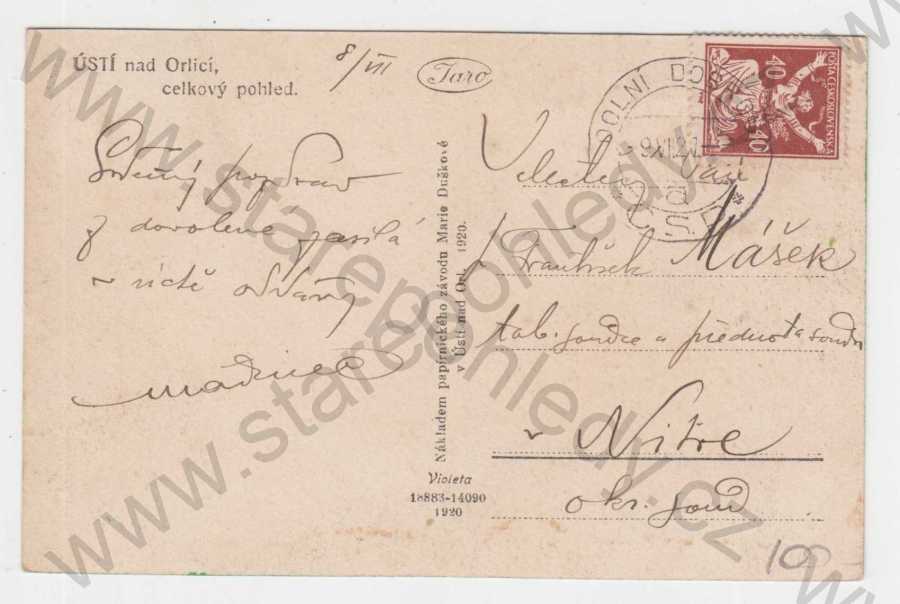 ÚSTÍ nad Orlicí,
celkový pohled.
8/VII
Taro
Srdečný pozdrav
z dovolené zasílá
Nákladem papírnického závodu Marie Duškové
v Ústí nad Orl. 1920.
Violeta
18883-14090
1920
DOLNÍ DOB
POŠTA ČESKOSLOVENSKÁ
40 40
František Mášek
a přednosta soudu
v Nitře
okr. soud
109
www.starepohledy.cz